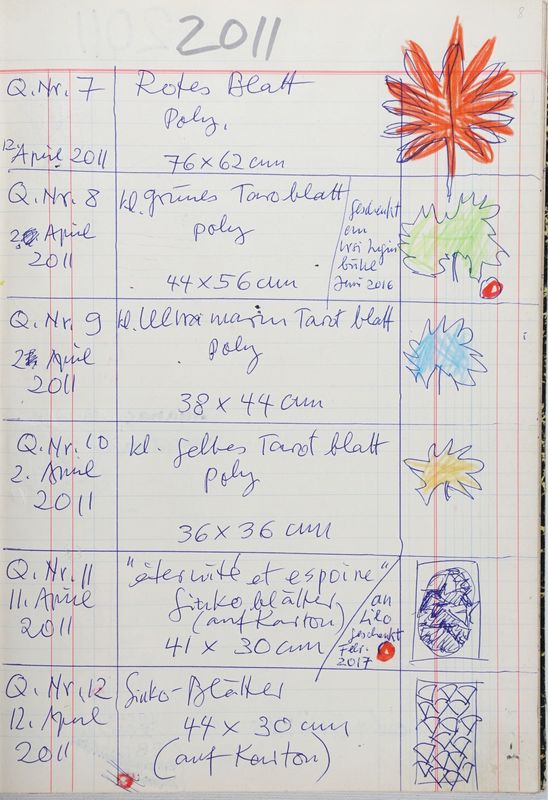 8
2011
Q. Nr. 7
Rotes Blatt
Poly.
12. April 2011
76 x 62 cm
Q. Nr. 8
kl. grünes Taroblatt
2. April
poly
2011
44 x 56 cm
geschenkt
Juni 2016
Q. Nr. 9
kl. Ultramarin Tarot blatt
2. April
poly
2011
38 x 44 cm
Q. Nr. 10
kl. gelbes Tarot blatt
2. April
poly
2011
36 x 36 cm
Q. Nr. 11
"éternité et espoire"
11. April
Ginko blätter
(auf Karton)
2011
41 x 30 cm
an
Lilo
geschenkt
Febr.
2017
Q. Nr. 12
Ginko-Blätter
12. April
44 x 30 cm
2011
(auf Karton)